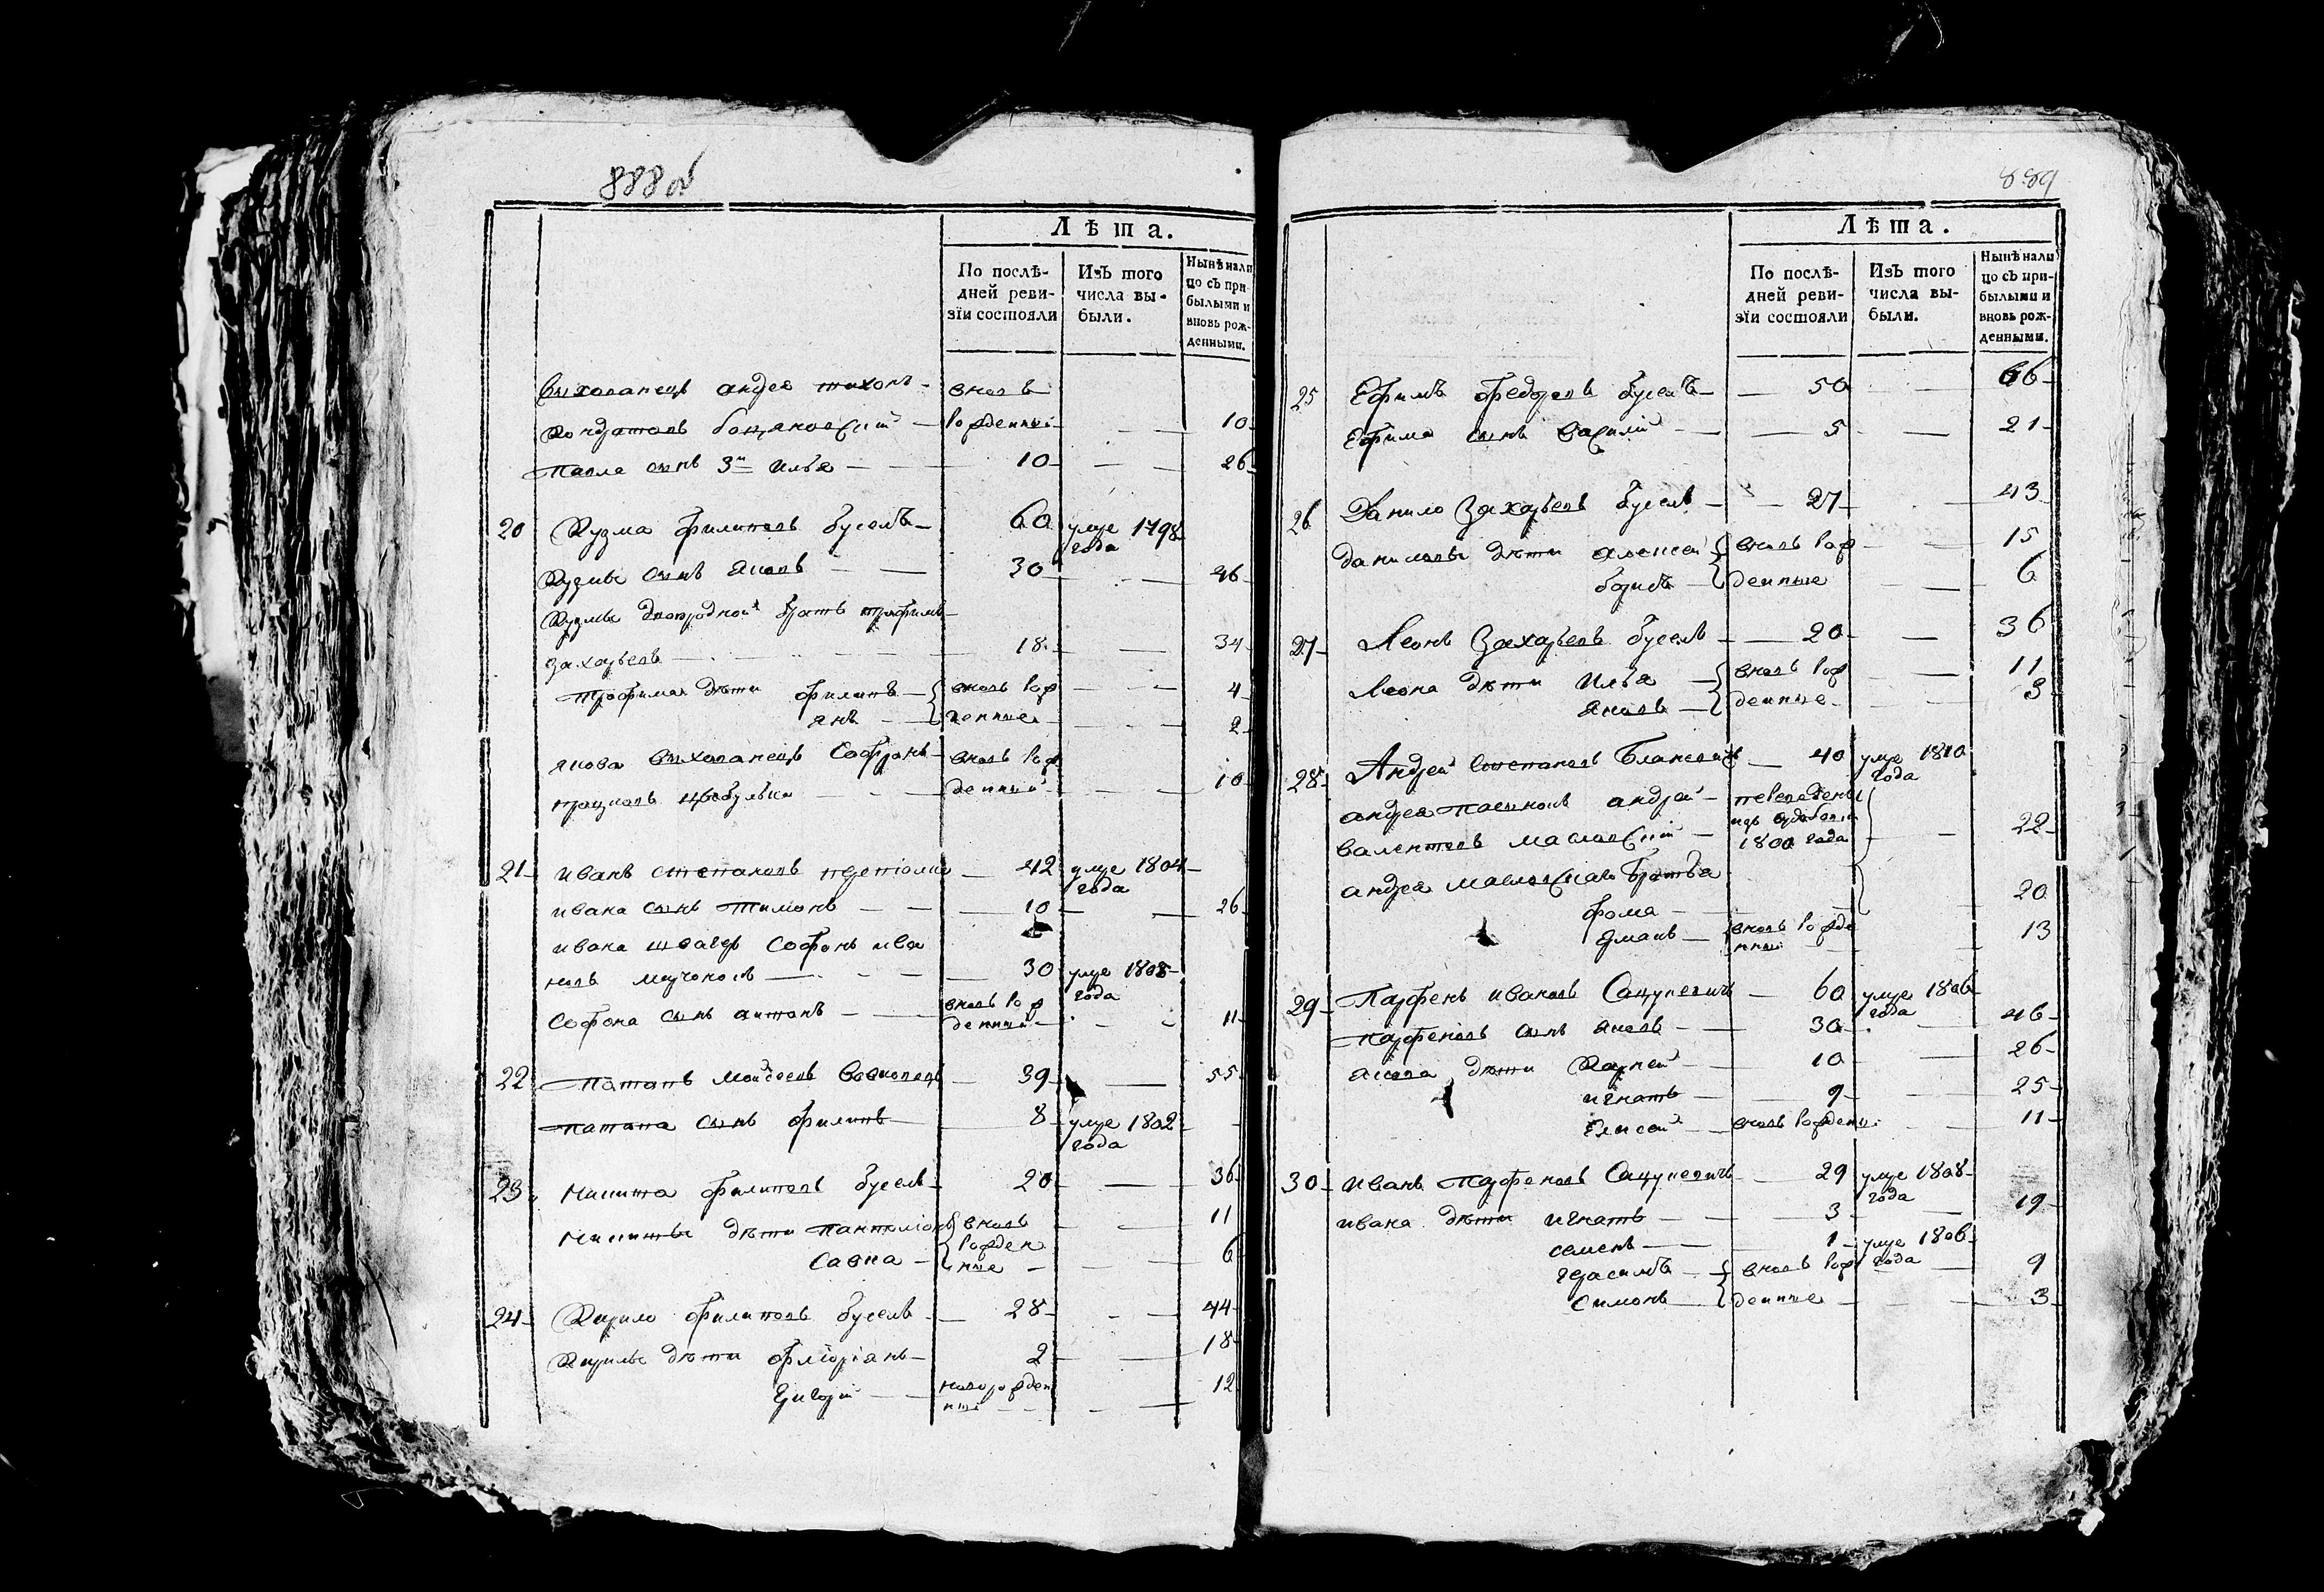 888 об
Лѣта.
По послѣ-
дней реви-
зїи состояли
Изъ того
числа вы-
были.
Нынѣ нали
цо съ при-
былыми и
вновь рож-
денными.
выхованецъ андрея тихонъ вновь
кондратовъ рожденный 10
Павла сынъ 3й илья 10 26
20 Кузма филиповъ буселъ 60 умре 1798
года
Кузмы сынъ яковъ 30 46
Кузмы двоюродной братъ трофимъ
захарьевъ 18 34
трофима дѣти филипъ вновь рож 4
янъ денные 2
якова выхованецъ софронъ вновь рож
цыбульки денный 10
21 иванъ степановъ 42 умре 1804
года
ивана сынъ тимонъ 10 26
ивана швагеръ софонъ ива
новъ 30 умре 1808
года
софона сынъ антонъ вновь рож
денный 11
22 Потапъ 39 55
потапа сынъ филипъ 8 умре 1802
года
23 никита филиповъ буселъ 20 36
никиты дѣти вновь 11
савка рожден
ные 6
24 Кирило филиповъ буселъ 28 44
Кирилы дѣти флоріянъ 2 18
григорій новорожден
ный 12
889
Лѣта.
По послѣ-
дней реви-
зїи состояли
Изъ того
числа вы-
были.
Нынѣ нали
цо съ при-
былыми и
вновь рож-
денными.
25 Ефимъ федоровъ буселъ 50 66
Ефима сынъ василій 5 21
26 Данило Захарьевъ бусель 27 43
даниловы дѣти алексей вновь рож 15
борисъ денные 6
27 Леонъ Захарьевъ бусель 20 36
Леона дѣти илья вновь рож 11
яковъ денные 3
28 Андрей степановъ 40 умре 1810
года
андрея пасынокъ андрей переведены
изъ
валентовъ масловскій 1800 года 22
андрея масловскаго братья
фома 20
романъ вновь рожде
нный 13
29 Парфенъ ивановъ Сацукевичъ 60 умре 1806
года
парфеновъ сынъ яковъ 30 46
якова дѣти Карней 10 26
игнатъ 9 25
елисей вновь рожденый 11
30 иванъ парфеновъ Сацукевичъ 29 умре 1808
года
ивана дѣти игнатъ 3 19
семенъ 1 умре 1806
года
герасимъ вновь рож 9
симонъ денные 3